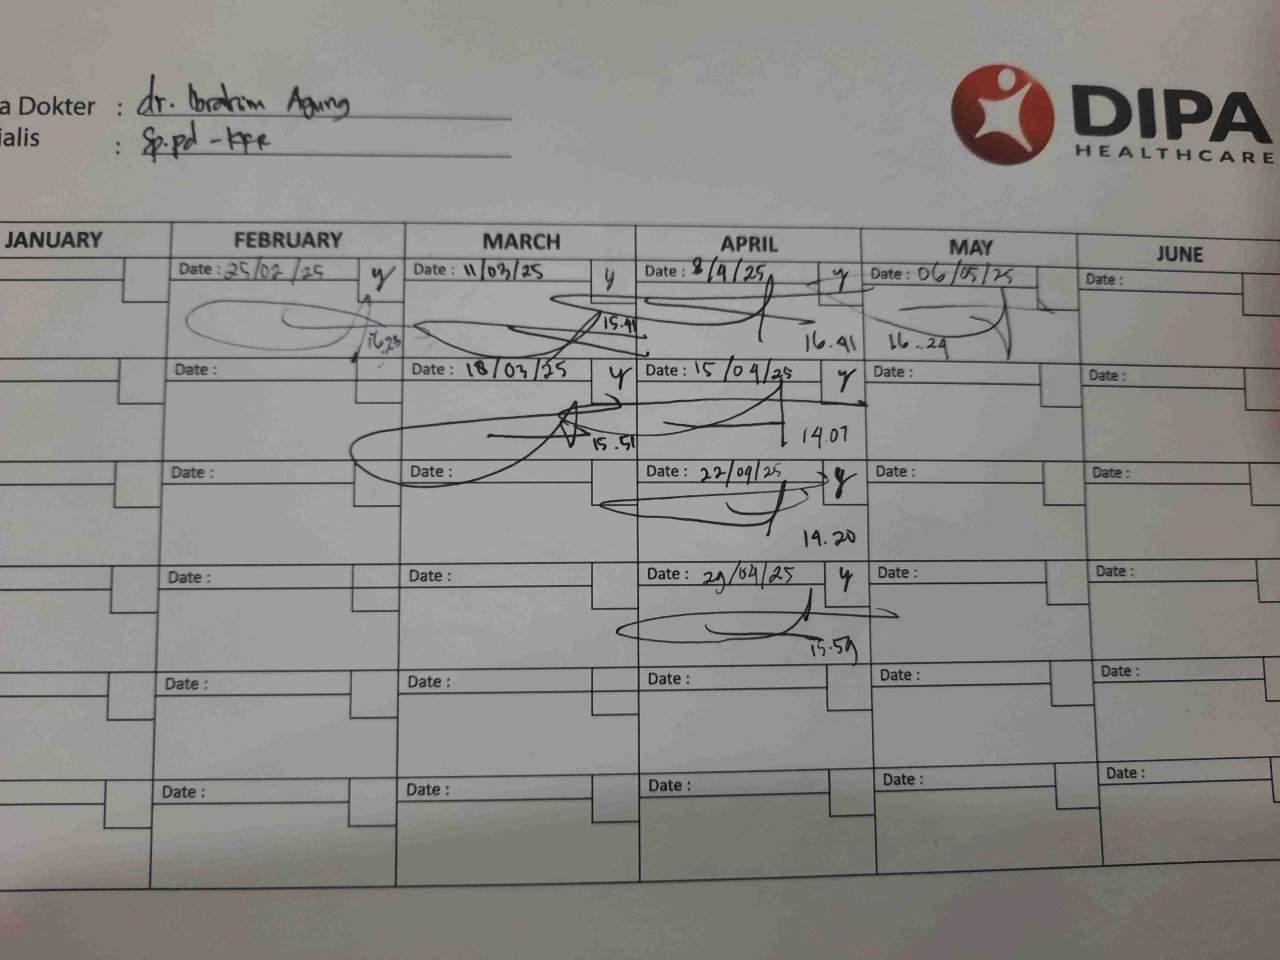 a Dokter : dr. Ibrahim Agung
ialis : Sp.pd - KFR
DIPA
HEALTHCARE
JANUARY FEBRUARY MARCH APRIL MAY JUNE
Date : 25/02/25 y Date : 11/03/25 y Date : 8/4/25 y Date : 06/05/25 Date :
16.23 15.41 16.41 16.24
Date : Date : 18/03/25 y Date : 15/04/25 y Date : Date :
15.51 14.07
Date : Date : Date : 22/04/25 y Date : Date :
14.20
Date : Date : Date : 29/04/25 y Date : Date :
15.59
Date : Date : Date : Date : Date :
Date : Date : Date : Date : Date :